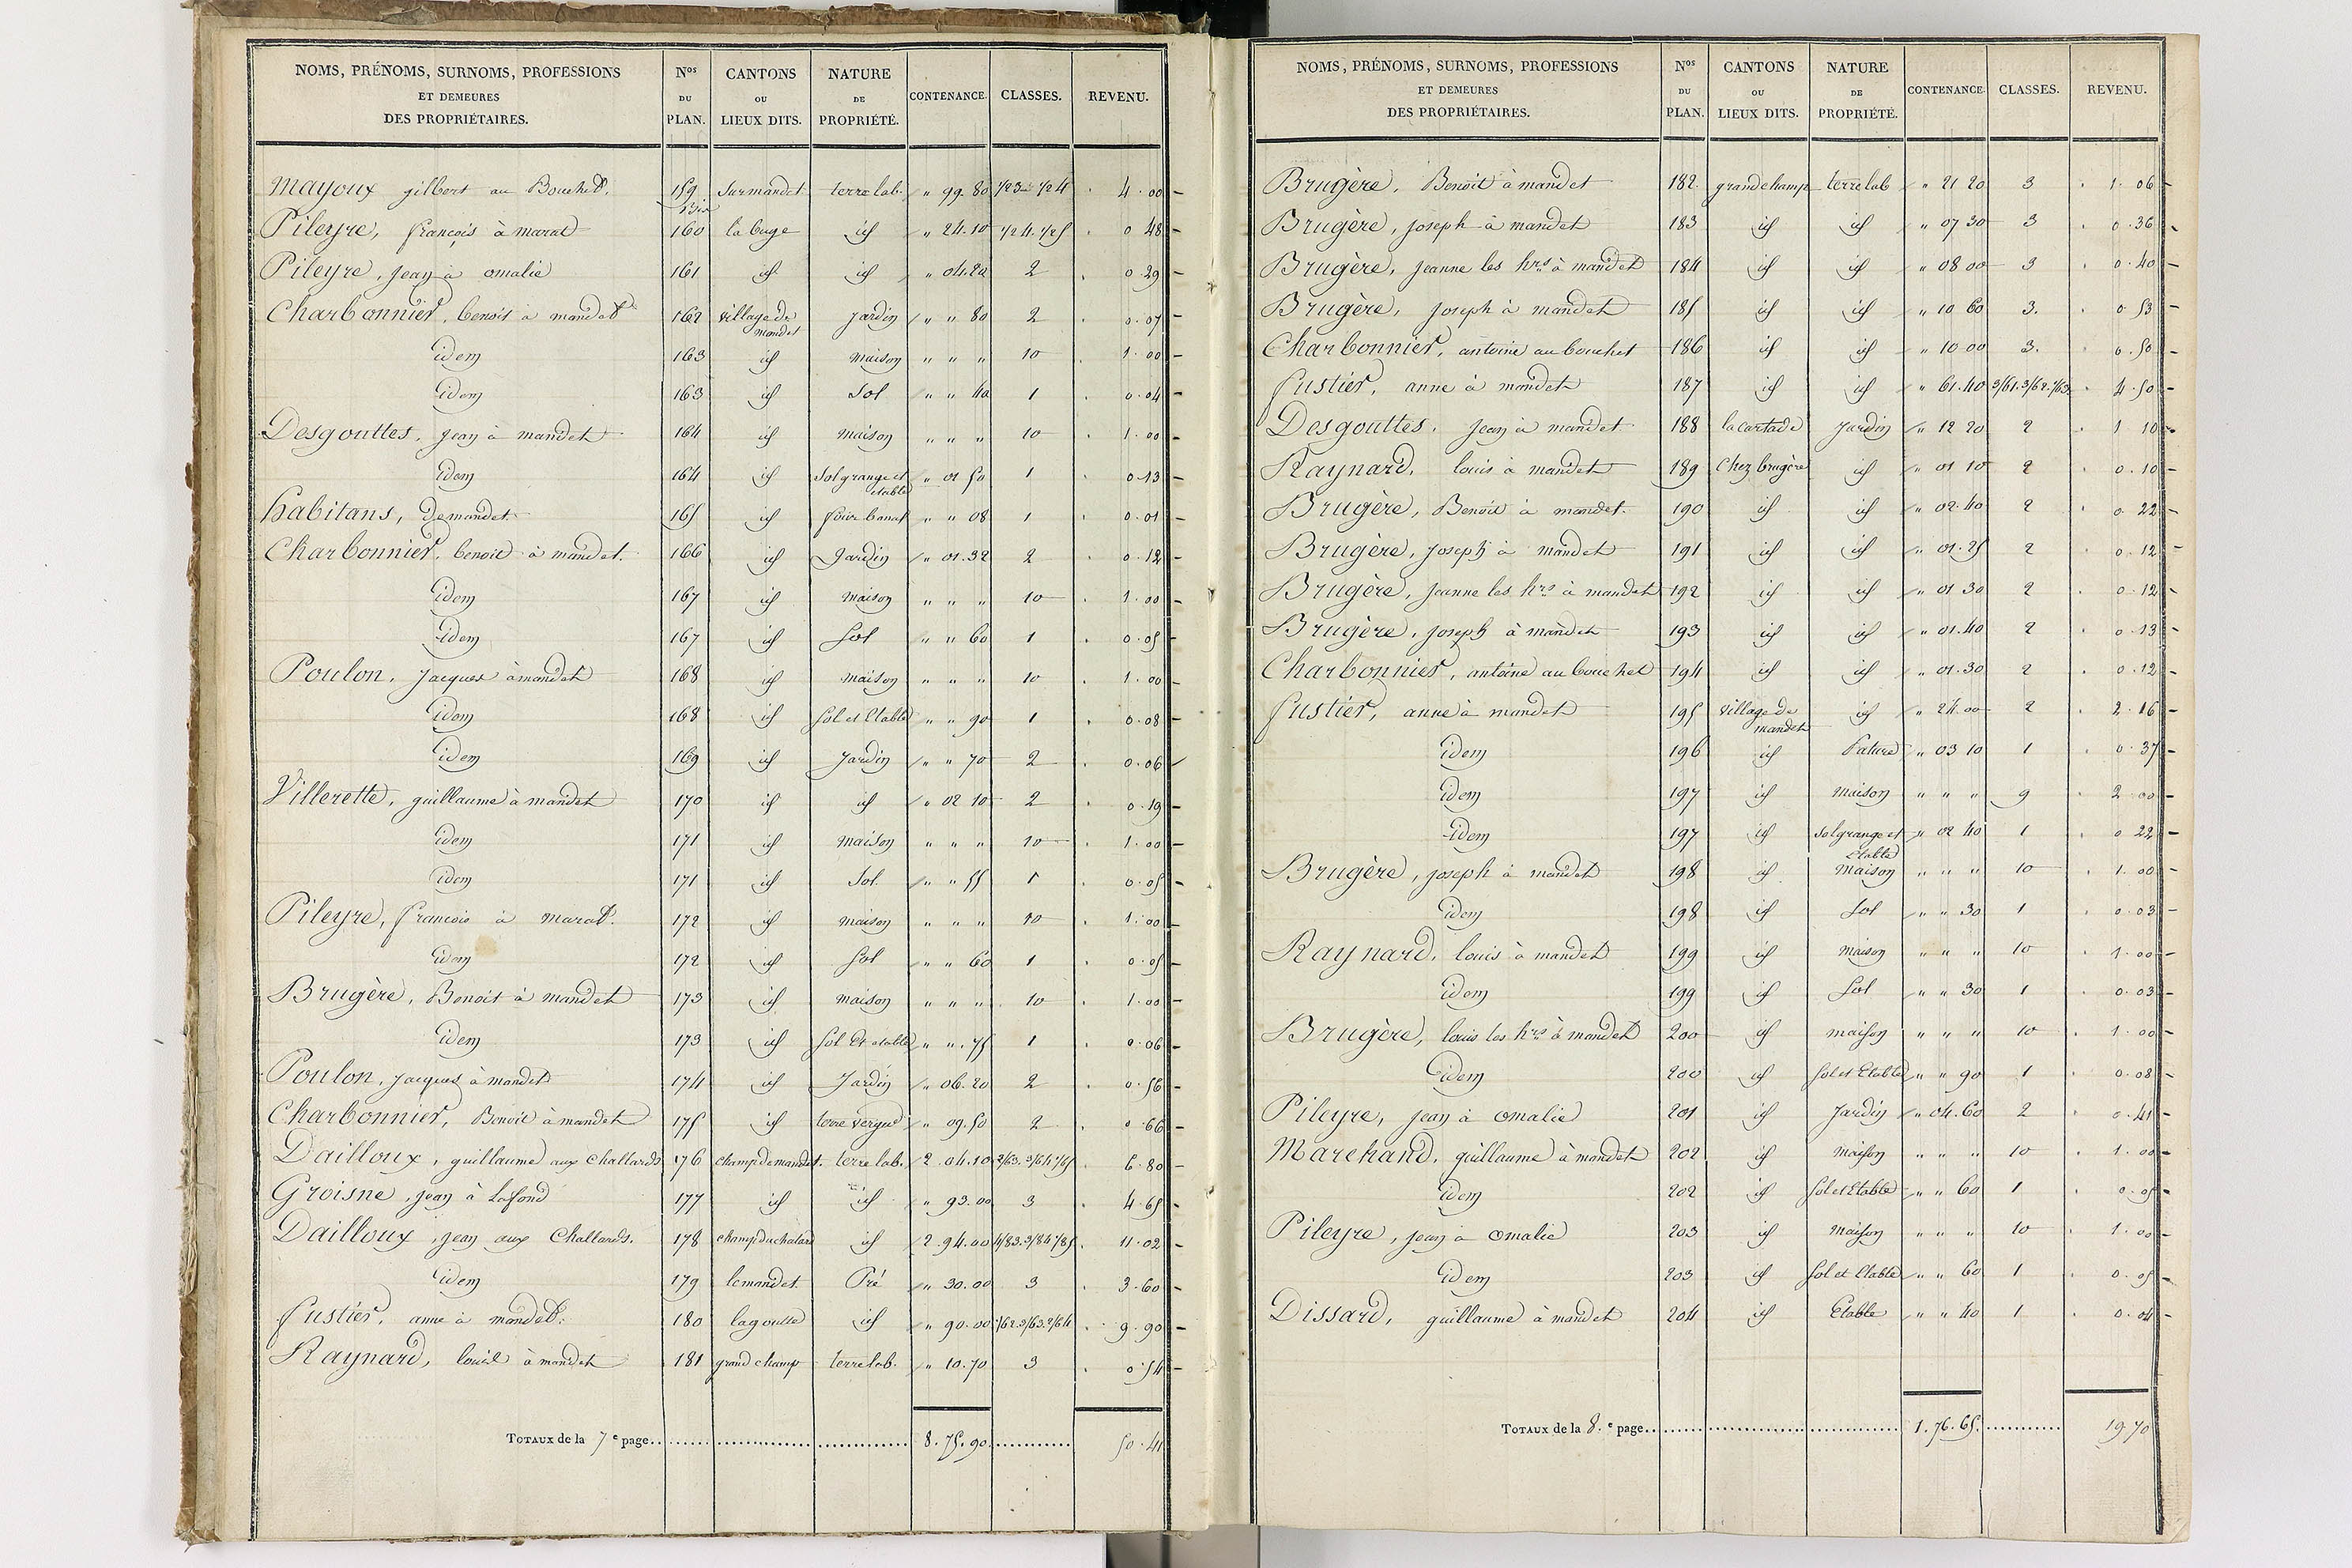 NOMS, PRÉNOMS, SURNOMS, PROFESSIONS ET DEMEURES DES PROPRIÉTAIRES. Nos DU PLAN. CANTONS OU LIEUX DITS. NATURE DE PROPRIÉTÉ. CONTENANCE. CLASSES. REVENU.
Mayoux gilbert au Bouchet. 159 bis Surmandet terre lab. " 99. 80 1/2 3 1/2 4 4. 00
Pileyre, françois à marat 160 la buge id " 24. 10 1/2 4. 1/2 5 0 48
Pileyre, jean à omalie 161 id id " 04. 20 2 0. 29
Charbonnier, benoit à mandet 162 village de mandet Jardin " " 80 2 0. 07
idem 163 id maison " " " 10 1. 00
idem 163 id Sol " " 40 1 0. 04
Desgouttes, jean à mandet 164 id maison " " " 10 1. 00
idem 164 id Sol grange et étable " 01 50 1 0. 13
habitans, de mandet 165 id four banal " " 08 1 0. 01
Charbonnier, benoit à mandet. 166 id Jardin " 01. 32 2 0. 12
idem 167 id maison " " " 10 1. 00
idem 167 id Sol " " 60 1 0. 05
Poulon, Jacques à mandet 168 id maison " " " 10 1. 00
idem 168 id Sol et Etable " " 90 1 0. 08
idem 169 id Jardin " " 70 2 0. 06
Villerette, guillaume à mandet 170 id id " 02 10 2 0. 19
idem 171 id maison " " " 10 1. 00
idem 171 id Sol. " " 55 1 0. 05
Pileyre, francois à marat. 172 id maison " " " 10 1. 00
idem 172 id Sol " " 60 1 0. 05
Brugère, Benoit à mandet 173 id maison " " " 10 1. 00
idem 173 id Sol Et etable " " 75 1 0. 06
Poulon, jacques à mandet 174 id Jardin " 06. 20 2 0. 56
Charbonnier, Benoit à mandet 175 id terre vergne " 09. 50 2 0. 66
Dailloux, guillaume aux Challards 176 champ de mandet. terre lab. 2. 04. 10 6. 80
Groisne, jean à Lafond 177 id id " 93. 00 3 4. 65
Dailloux, jean aux Challards. 178 champ du chalard id 2. 94. 00 11. 02
idem 179 le mandet Pré " 30. 00 3 3. 60
fustier, anne à mandet. 180 la goutte id " 90. 00 9. 90
Raynard, louis à mandet 181 grand champ terre lab. " 10. 70 3 0. 54
TOTAUX de la 7e page 8. 75. 90 50. 41
NOMS, PRÉNOMS, SURNOMS, PROFESSIONS ET DEMEURES DES PROPRIÉTAIRES. Nos DU PLAN. CANTONS OU LIEUX DITS. NATURE DE PROPRIÉTÉ. CONTENANCE. CLASSES. REVENU.
Brugère, Benoit à mandet 182 grand champ terre lab " 21 20 3 1. 06
Brugère, joseph à mandet 183 id id " 07 30 3 0. 36
Brugère, jeanne les hrs à mandet 184 id id " 08 00 3 0. 40
Brugère, joseph à mandet 185 id id " 10 60 3. 0. 53
Charbonnier, antoine au bouchet 186 id id " 10 00 3. 0. 50
fustier, anne à mandet 187 id id " 61. 40 4. 50
Desgouttes, jean à mandet 188 la cartade Jardin " 12 20 2 1 10
Raynard, louis à mandet 189 Chez brugère id " 01 10 2 0. 10
Brugère, Benoit à mandet. 190 id id " 02. 40 2 0. 22
Brugère, joseph à mandet 191 id id " 01. 25 2 0. 12
Brugère, jeanne les hrs à mandet 192 id id " 01 30 2 0. 12
Brugère, joseph à mandet 193 id id " 01. 40 2 0. 13
Charbonnier, antoine au bouchet 194 id id " 01. 30 2 0. 12
fustier, anne à mandet 195 village de mandet id " 24. 00 2 2. 16
idem 196 id Pature " 03 10 1 0. 37
idem 197 id maison " " " 9 2. 00
idem 197 id Sol grange et Etable " 02 40 1 0 22
Brugère, joseph à mandet 198 id maison " " " 10 1. 00
idem 198 id Sol " " 30 1 0. 03
Raynard, louis à mandet 199 id maison " " " 10 1. 00
idem 199 id Sol " " 30 1 0. 03
Brugère, louis les hrs à mandet 200 id maison " " " 10 1. 00
idem 200 id Sol et Etable " " 90 1 0. 08
Pileyre, jean à omalie 201 id Jardin " 04. 60 2 0. 41
Marchand, guillaume à mandet 202 id maison " " " 10 1. 00
idem 202 id Sol et Etable " " 60 1 0. 05
Pileyre, jean à omalie 203 id maison " " " 10 1. 00
idem 203 id Sol et Etable " " 60 1 0. 05
Dissard, guillaume à mandet 204 id Etable " " 40 1 0. 04
TOTAUX de la 8.e page 1. 76. 65. 19 70